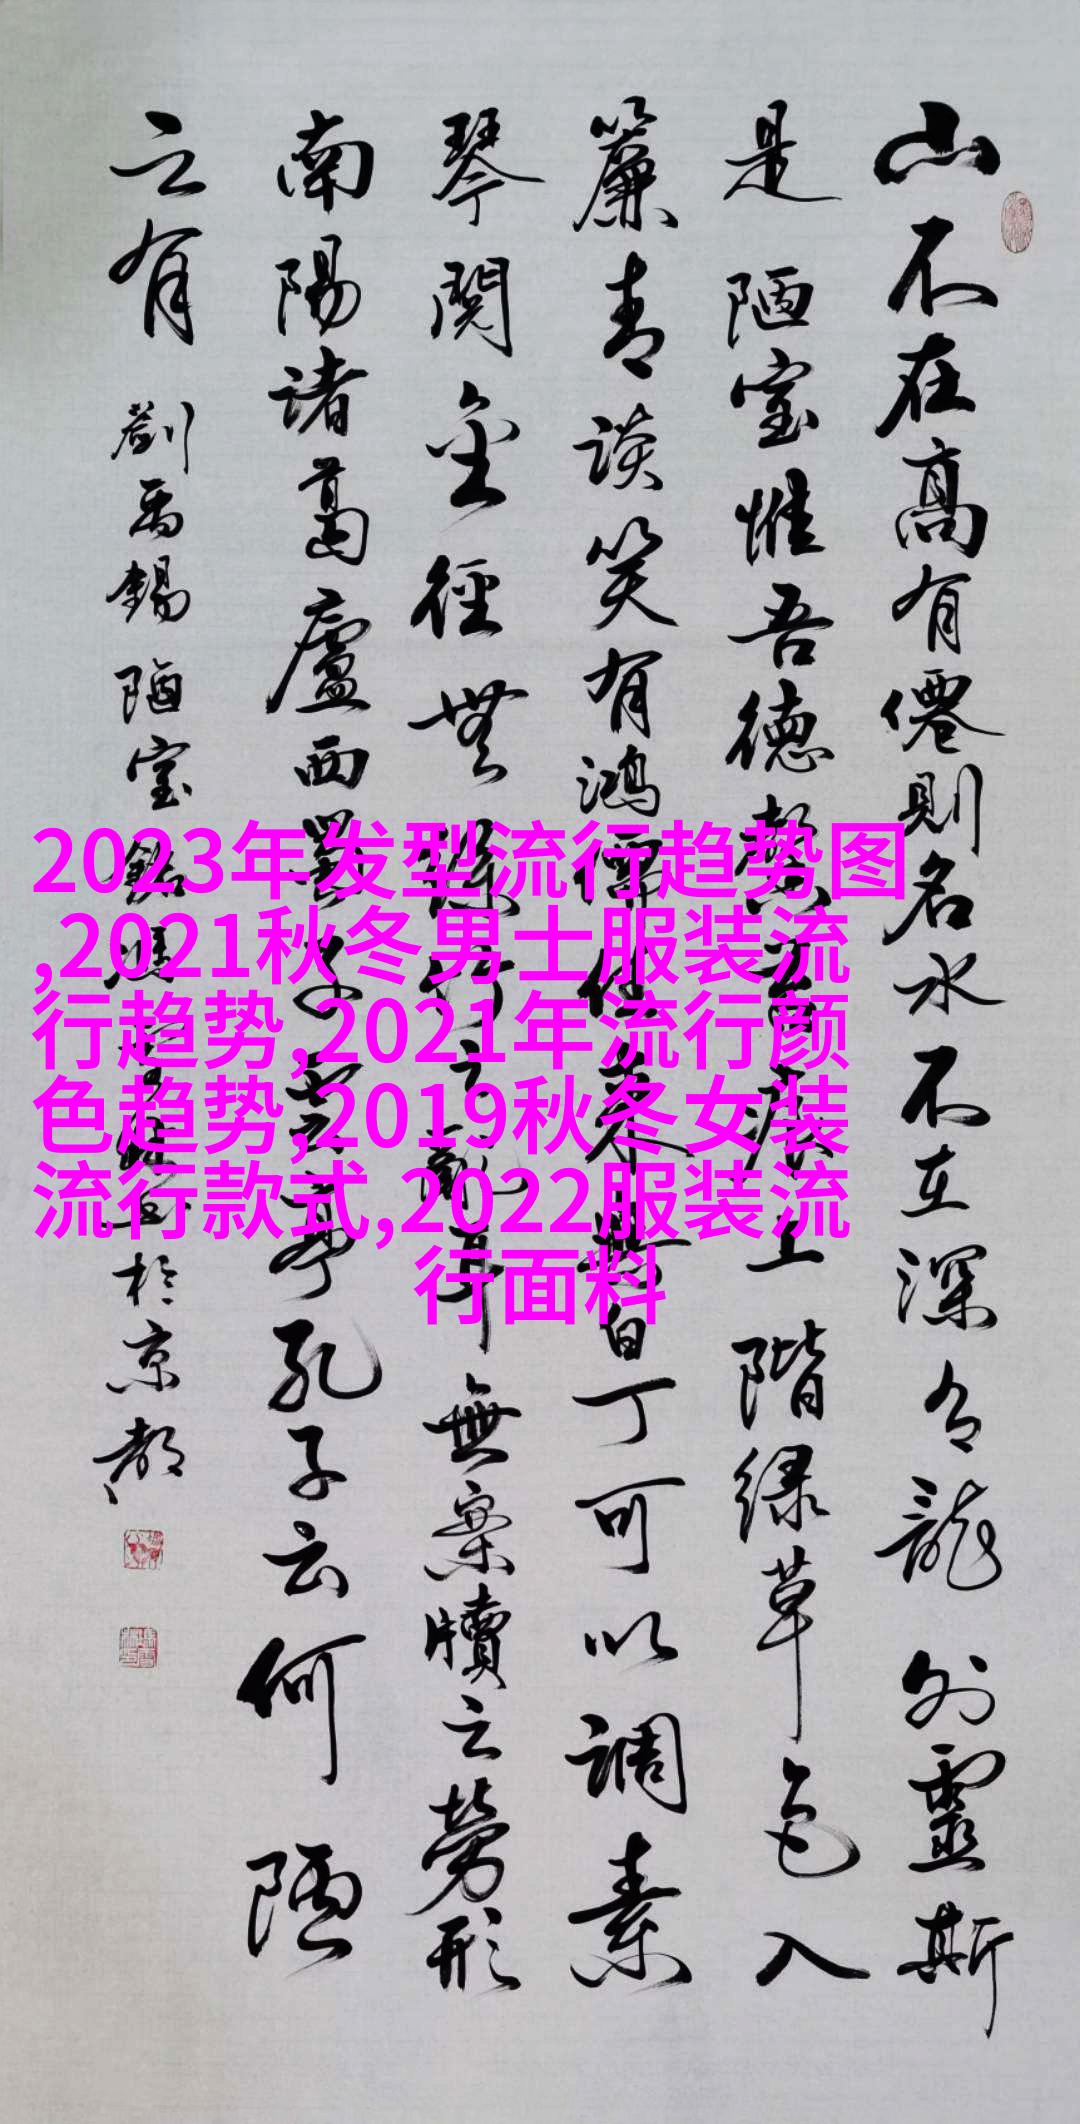 山不在高有僊則名水不在深有龍則靈斯
是陋室惟吾德馨苔痕上階緑草色入
簾青談笑有鴻儒往来無白丁可以調素
琴閱金徑無絲竹之亂耳無案牘之勞形
南陽諸葛廬西蜀子雲亭孔子云何陋
之有 劉禹錫陋室銘 於京都
2023年发型流行趋势图
,2021秋冬男士服装流
行趋势,2021年流行颜
色趋势,2019秋冬女装
流行款式,2022服装流
行面料